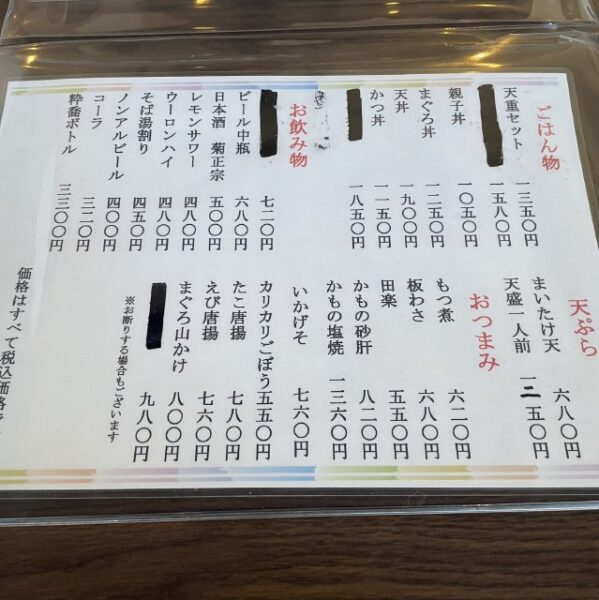 ごはん物
天重セット 一三五〇円
一五八〇円
親子丼 一〇五〇円
まぐろ丼 一二五〇円
天丼 一九〇〇円
かつ丼 一一五〇円
一八五〇円
お飲み物
七二〇円
ビール中瓶 六八〇円
日本酒 菊正宗 五〇〇円
レモンサワー 四八〇円
ウーロンハイ 四八〇円
そば湯割り 四五〇円
ノンアルビール 四〇〇円
コーラ 三二〇円
粋喬ボトル 三三〇〇円
天ぷら
まいたけ天 六八〇円
天盛一人前 一二五〇円
おつまみ
もつ煮 六二〇円
板わさ 六八〇円
田楽 五五〇円
かもの砂肝 八二〇円
かもの塩焼 一三六〇円
いかげそ 七六〇円
カリカリごぼう 五五〇円
たこ唐揚 七八〇円
えび唐揚 七六〇円
まぐろ山かけ 八〇〇円
九八〇円
※お断りする場合もございます
価格はすべて税込価格で